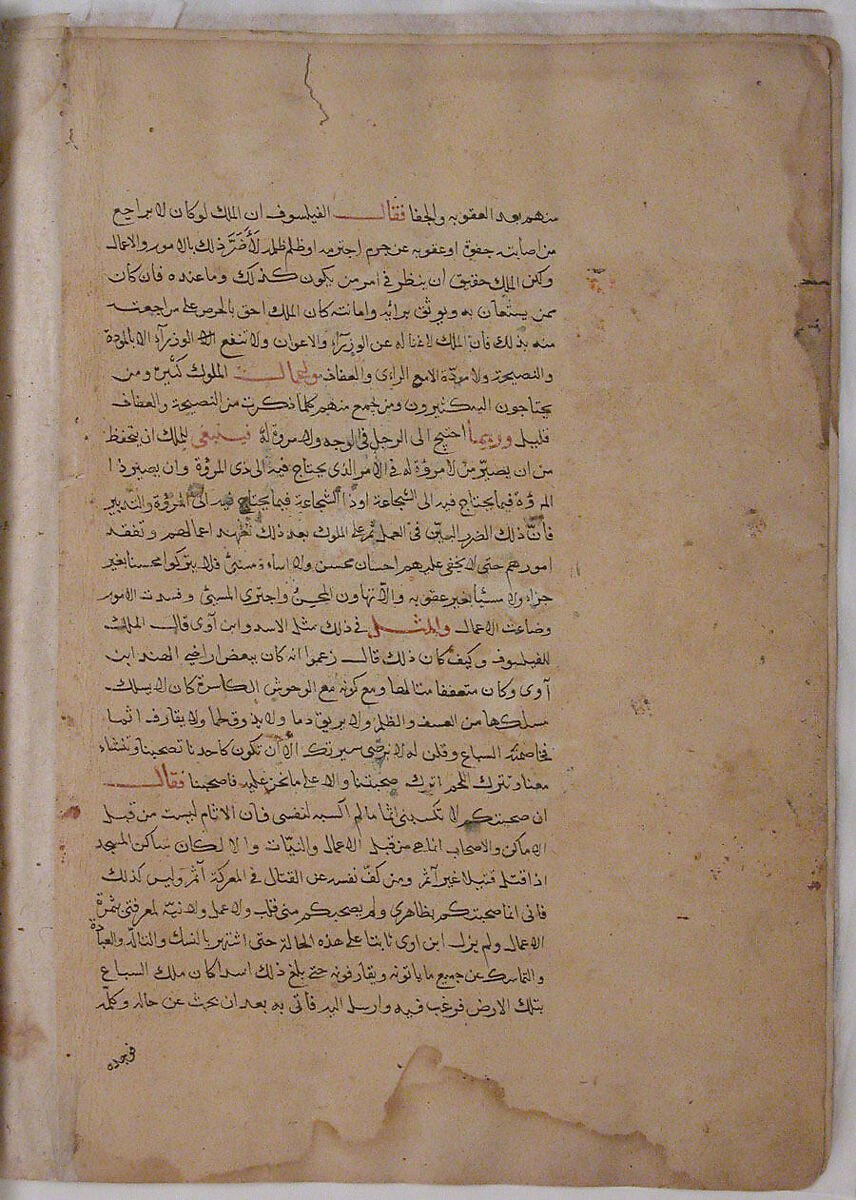 منهم بعد العقوبه والجفا فقال الفيلسوف ان الملك لو كان لا يراجع
من اصابته جفوة او عقوبه عن جرم اجترمه او ظلم ظلمه لأَضَرَّ ذلك بالامور والاعمال
ولكن الملك حقيق ان ينظر فى امر من يكون كذلك وما عنده فان كان
ممن يستعان به ويوثق برائه وامانته كان الملك احق بالحرص على مراجعته
منه بذلك فان الملك لا غنا له عن الوزرآء والاعوان ولا تنفع الوزرآء الا بالمودة
والنصيحة ولا مودّة الا مع الراى والعفاف الملوك كثيرة ومن
يحتاجون اليه كثيرون ومن يجمع منهم كلما ذكرت من النصيحة والعفاف
قليل وربما احتيج الى الرجل فى الوجه ولا مروة له فينبغى للملك ان يتحفظ
من ان يصير من لا مروّة له فى الامر الذى يحتاج فيه الى ذى المروّة وان يصير ذا
المروّة فيما يحتاج فيه الى الشجاعة او ذا الشجاعة فيما يحتاج فيه الى المروّة والتدبير
فانّ ذلك الضرر البين فى العمل ثم على الملوك بعد ذلك تعهد اعمالهم وتفقد
امورهم حتى لا يخفى عليهم احسان محسن ولا اساءة مسئ فلا يتركوا محسنا بغير
جزاء ولا مسئيا بغير عقوبه والّا تهاون المحسن واجترى المسئ وفسدت الامور
وضاعت الاعمال والمثل فى ذلك مثل الاسد وابن آوى قال الملك
للفيلسوف وكيف كان ذلك قال زعموا انه كان ببعض اراضى الهند ابن
آوى وكان متعففا متالها ومع كونه مع الوحوش الكاسرة كان لا يسلك
مسلكها من العسف والظلم ولا يريق دما ولا يذوق لحما ولا يقارف اثما
فخاصمته السباع وقلن له لا نرضى سيرتك الا ان تكون كاحدنا تصحبنا وتنشاء
معنا وتترك اللحم اترك صحبتنا والا على ما نحن عليه فاصحبنا فقال
ان صحبتكم لا تكسبنى اثما ما لم اكسبه لنفسى فان الاثام ليست من قبل
الاماكن والاصحاب انما هى من قبل الاعمال والنيّات والا لكان ساكن المسجد
اذا قتل قتيلا غير آثم ومن كفّ نفسه عن القتال فى المعركة آثم وليس كذلك
فانى انما صحبتكم بظاهرى ولم يصحبكم منى قلب ولا عمل ولا نية لمعرفتى بثمرة
الاعمال ولم يزل ابن اوى ثابتا على هذه الحالة حتى اشتهر بالنسك والتاله والعبادة
والتماسك عن جميع ما ياتونه ويقارفونه حتى بلغ ذلك اسدا كان ملك السباع
بتلك الارض فرغب فيه وارسل اليه فاتى به بعد ان بحث عن حاله وكلّمه
فوجده